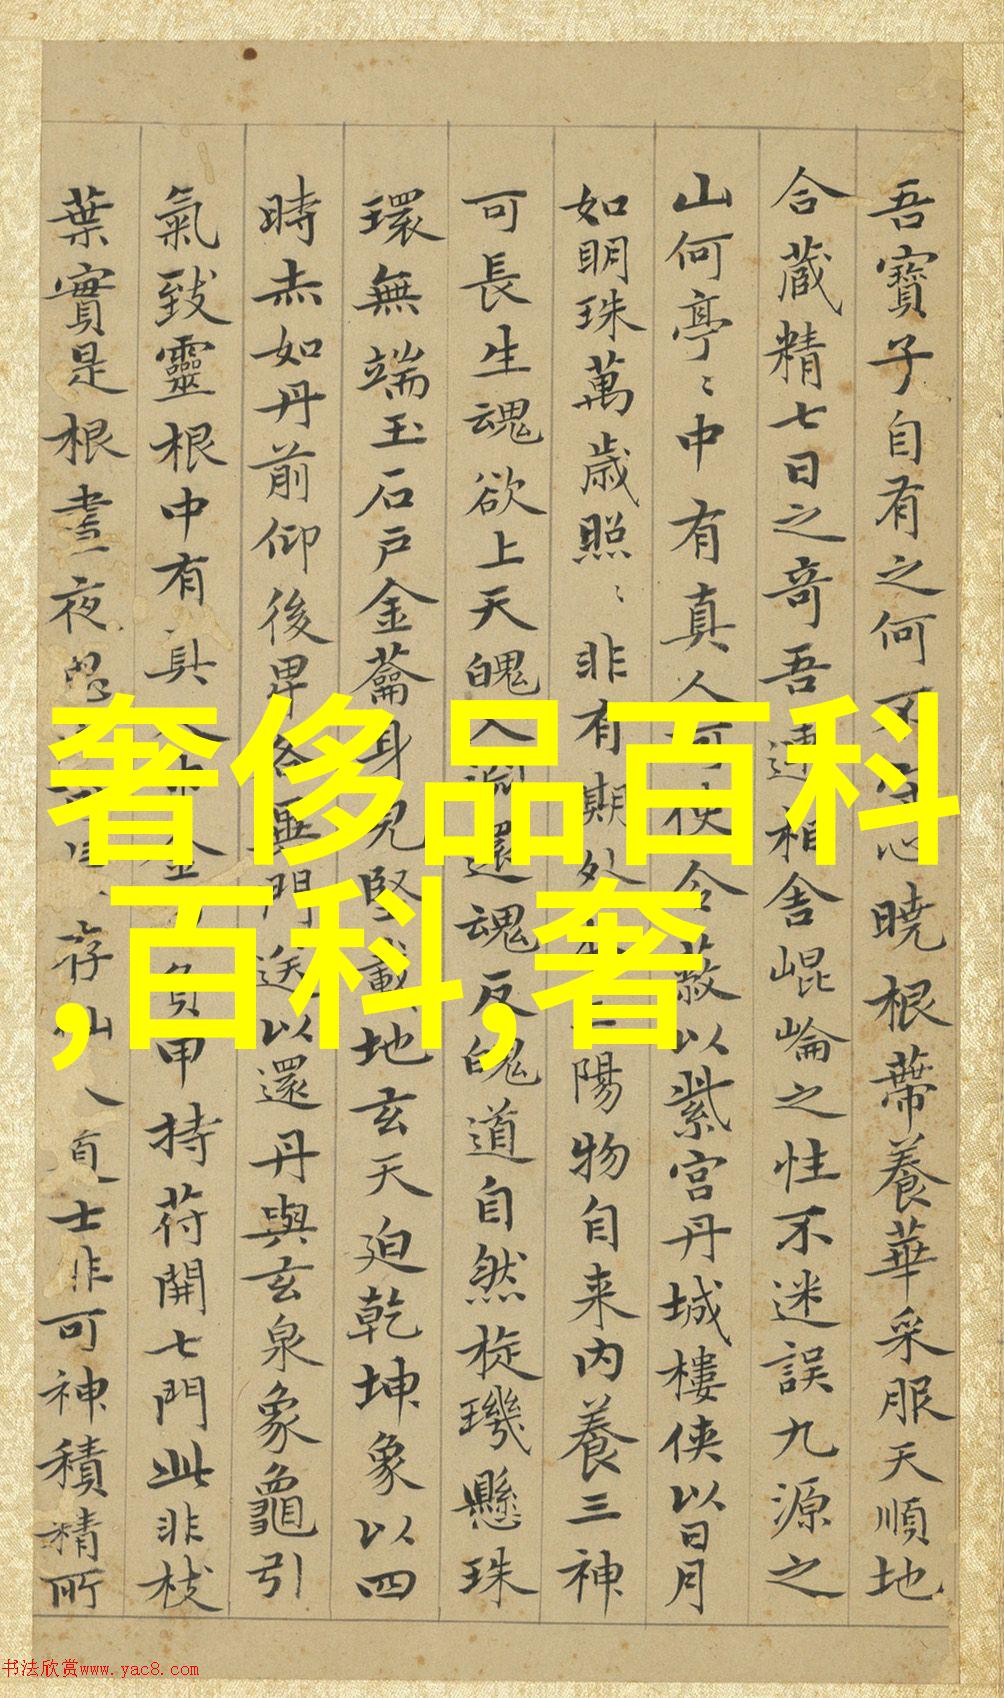 吾寶子自有之何不守心曉根蔕養華采服天順地
合蔵精七日之奇吾連相舍崐崘之性不迷誤九源之
山何亭〻中有真人可使令蔽以紫宮丹城樓俠以日月
如明珠萬歳照〻非有期外本三陽物自来内養三神
可長生魂欲上天魄入淵還魂反魄道自然旋璣懸珠
環無端玉石戶金蘥身皃堅載地玄天迫乾坤象以四
時赤如丹前仰後卑各異門送以還丹與玄泉象龜引
氣致靈根中有真人巾金巾負甲持苻開七門此非枝
葉實是根晝夜思 存仙人道士非可神積精所
奢侈品百科
,百科,奢
书法欣赏www.yac8.com